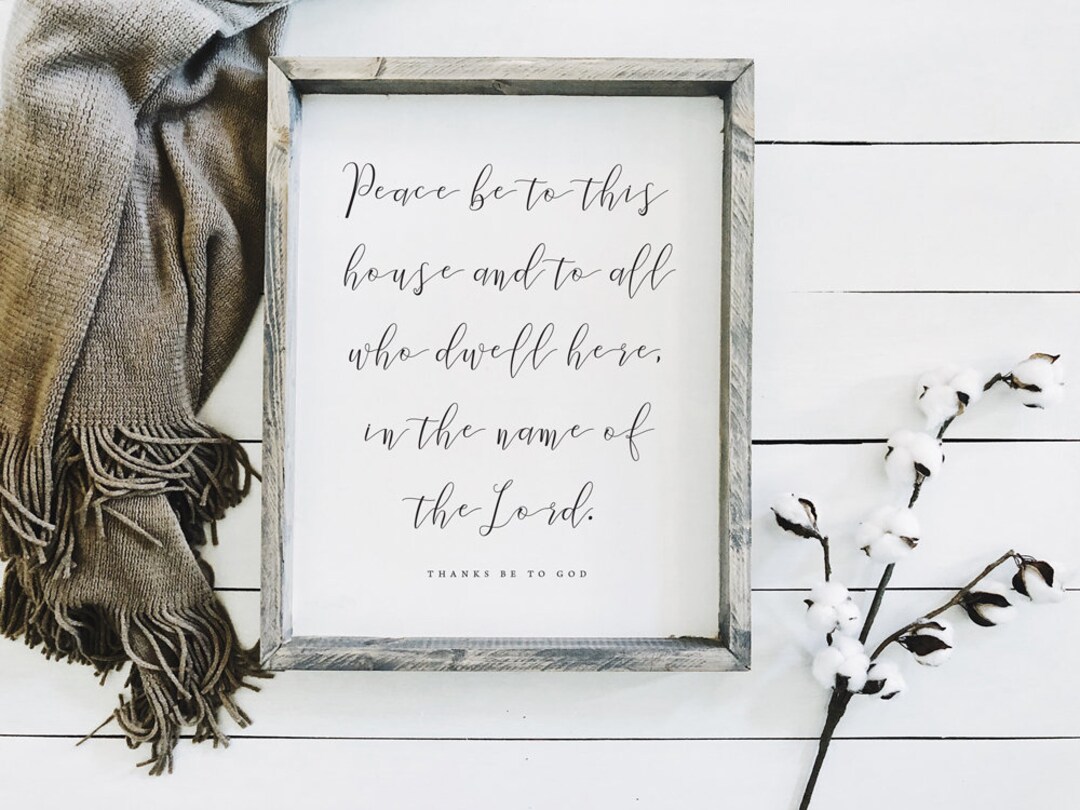 Peace be to this
house and to all
who dwell here,
in the name of
the Lord.
THANKS BE TO GOD